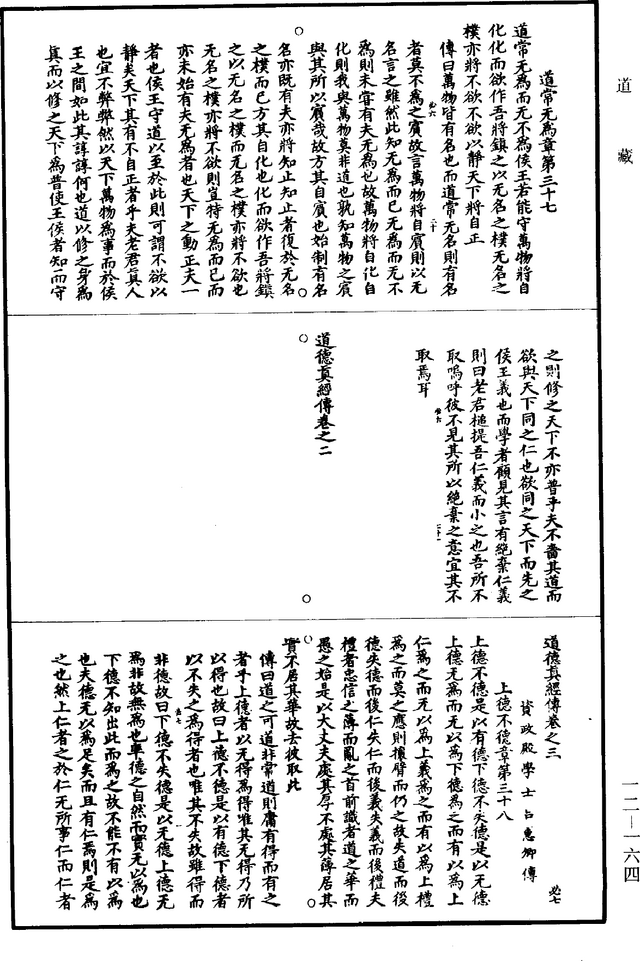 道藏
道常无為章第三十七
道常无為而无不為侯王若能守萬物將自
化化而欲作吾將鎮之以无名之樸无名之
樸亦將不欲不欲以靜天下將自正
傳曰萬物皆有名也而道常无名則有名
者莫不為之賓故言萬物將自賓則以无
名言之雖然此知无為而已无為而无不
為則未甞有夫无為也故萬物將自化自
化則我與萬物莫非道也孰知萬物之賓
與其所以賓哉故方其自賓也始制有名
名亦既有夫亦將知止知止者復於无名
之樸而已方其自化也化而欲作吾將鎮
之以无名之樸而无名之樸亦將不欲也
无名之樸亦將不欲則豈特无為而已而
亦未始有夫无為者也天下之動正夫一
者也侯王守道以至於此則可謂不欲以
靜矣天下其有不自正者乎夫老君真人
也宜不弊弊然以天下萬物為事而於侯
王之間如此其諄諄何也道以修之身為
真而以修之天下為普使王侯者知而守
之則修之天下不亦普乎夫不嗇其道而
欲與天下同之仁也欲同之天下而先之
侯王義也而學者顧見其言有絶棄仁義
則曰老君槌提吾仁義而小之也吾所不
取嗚呼彼不見其所以絶棄之意宜其不
取焉耳
道德真經傳卷之二
道德真經傳卷之三 必七
資政殿學士吕惠卿傳
上德不德章第三十八
上德不德是以有德下德不失德是以无德
上德无為而无以為下德為之而有以為上
仁為之而无以為上義為之而有以為上禮
為之而莫之應則攘臂而仍之故失道而後
德失德而後仁失仁而後義失義而後禮夫
禮者忠信之薄而亂之首前識者道之華而
愚之始是以大丈夫處其厚不處其薄居其
實不居其華故去彼取此
傳曰道之可道非常道則庸有得而有之
者乎上德者以无得為得唯其无得乃所
以得也故曰上德不德是以有德下德者
以不失之為得者也唯其不失故雖得而
非德故曰下德不失德是以无德上德无
為非故無為也率德之自然而實无以為也
下德不知出此而為之故不能不有以為
也夫德无以為足矣而且有仁焉則是為
之也然上仁者之於仁无所事仁而仁者
一二—一六四